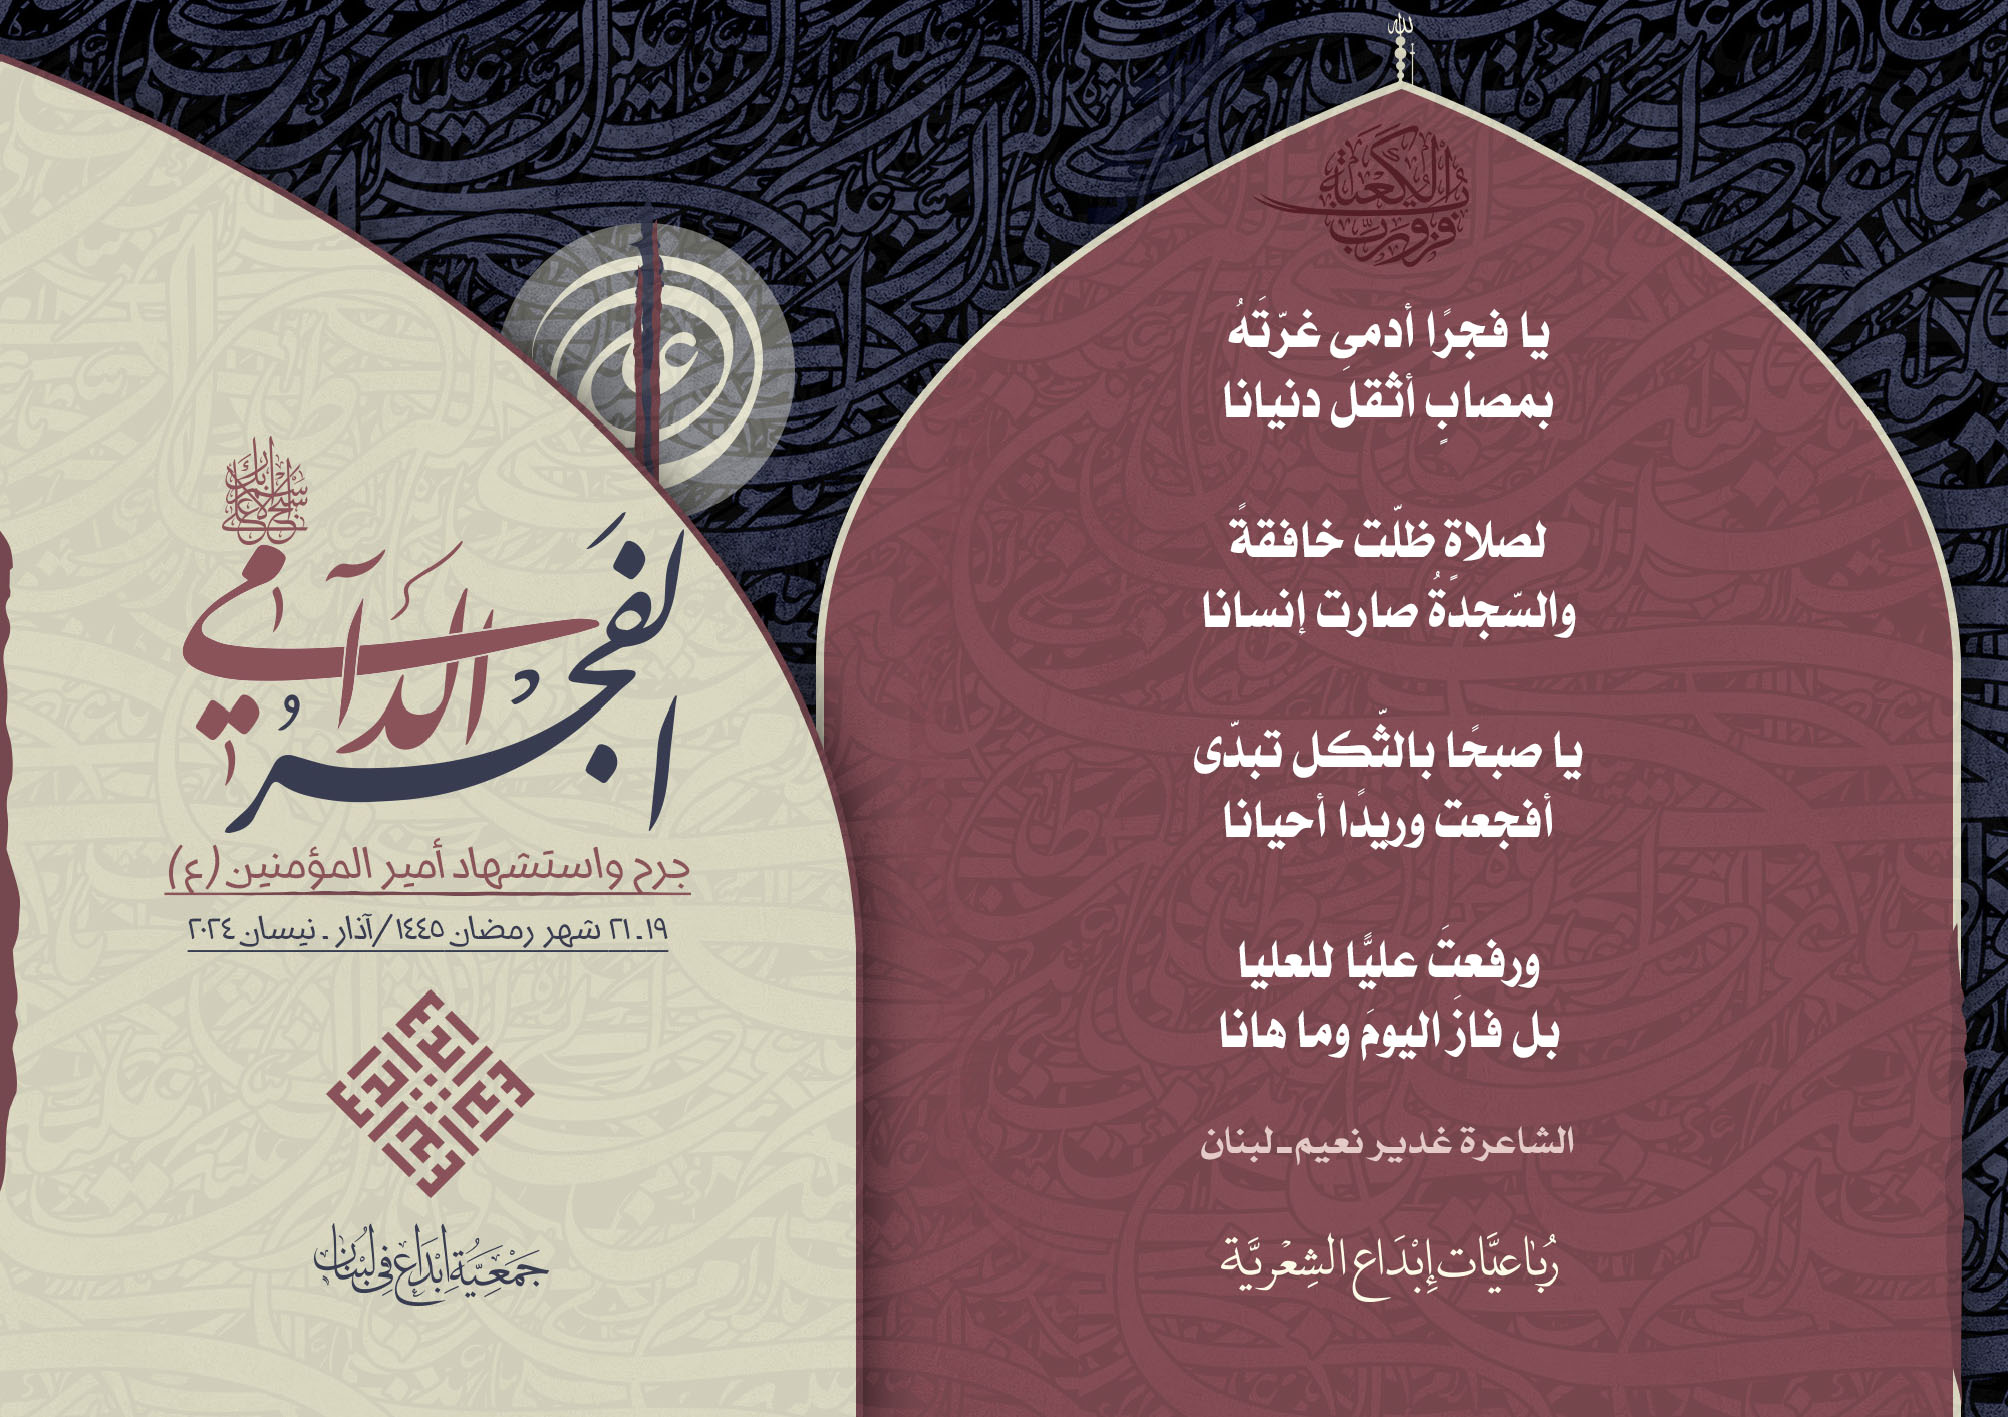 فزت ورب الكعبة
يا فجرًا أدمىِ غرّتَهُ
بمصابٍ أثقل دنيانا
لصلاةٍ ظلّت خافقةً
والسّجدةُ صارت إنسانا
يا صبحًا بالثّكل تبدّى
أفجعت وريدًا أحيانا
ورفعتَ عليًّا للعليا
بل فازَ اليومَ وما هانا
الشاعرة غدير نعيم-لبنان
رُبَاعيَّات إِبْدَاع الشِعْريَّة
علي
سبح اسم ربك الأعلى
الفَجرُ الدَّامي
جرح واستشهاد أمير المؤمنين (ع)
١٩-٢١ شهر رمضان ١٤٤٥/آذار - نيسان ٢٠٢٤
جَمْعِيَّة إِبْدَاع فِي لُبْنَان